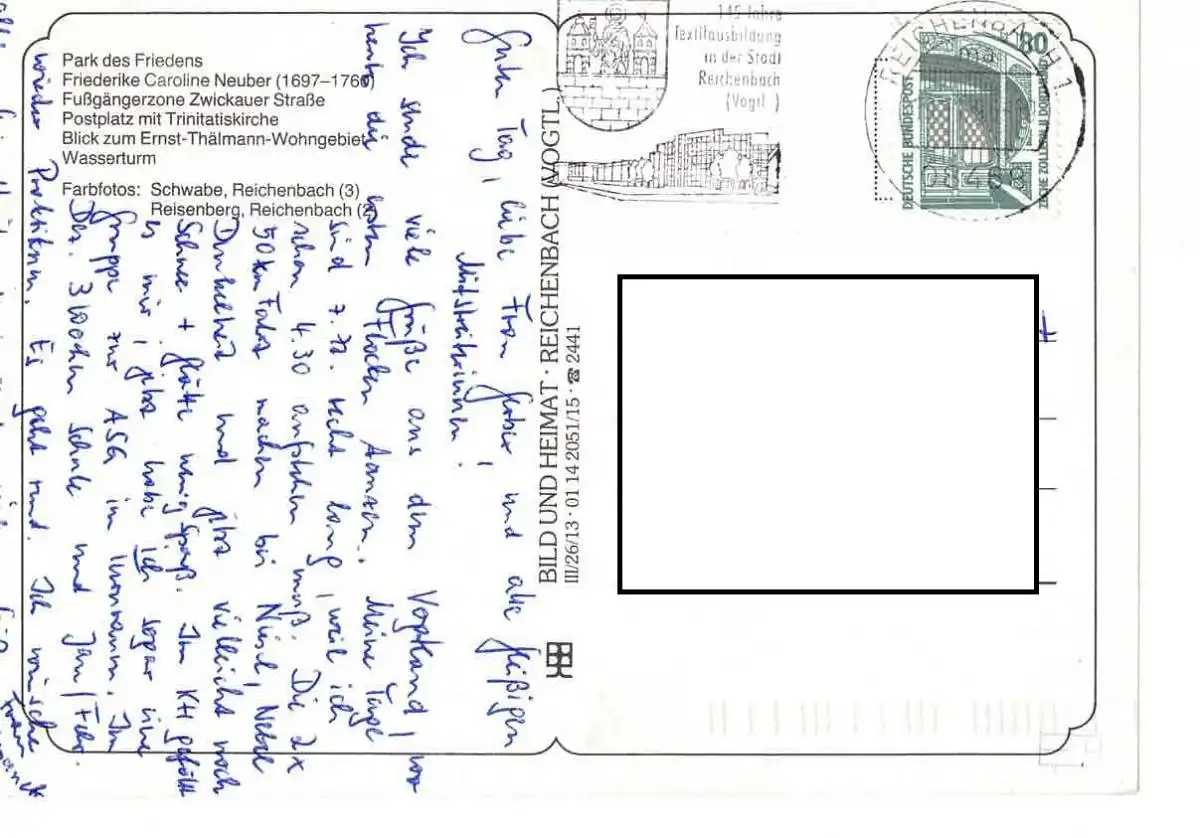 Park des Friedens
Friederike Caroline Neuber (1697–1760)
Fußgängerzone Zwickauer Straße
Postplatz mit Trinitatiskirche
Blick zum Ernst-Thälmann-Wohngebiet
Wasserturm
Farbfotos: Schwabe, Reichenbach (3)
Reisenberg, Reichenbach (2)
Guten Tag, liebe Frau und alle fleißigen
Mitstreiterinnen!
Ich sende viele Grüße aus dem Vogtland, wo
heute die ersten Flocken tanzen. Meine Tage
sind z. Zt. recht lang, weil ich
schon 4.30 aufstehen muß. Die 2x
50 km Fahrt machen bei Niesel, Nebel
Dunkelheit und jetzt vielleicht noch
Schnee + Glätte wenig Spaß. Im KH gefällt
es mir, jetzt habe ich sogar eine
Gruppe zur ASG im Turnraum. Im
Dez. 3 Wochen Schule und Jan/Febr.
wieder Praktikum. Es geht rund. Ich wünsche
BILD UND HEIMAT · REICHENBACH (VOGTL.)
III/26/13 · 01 14 2051/15 · ☎ 2441
145 Jahre
Textilausbildung
in der Stadt
Reichenbach
(Vogtl.)
REICHENBACH 1
ma
80
DEUTSCHE BUNDESPOST
ZECHE ZOLLERN II DORTMUND